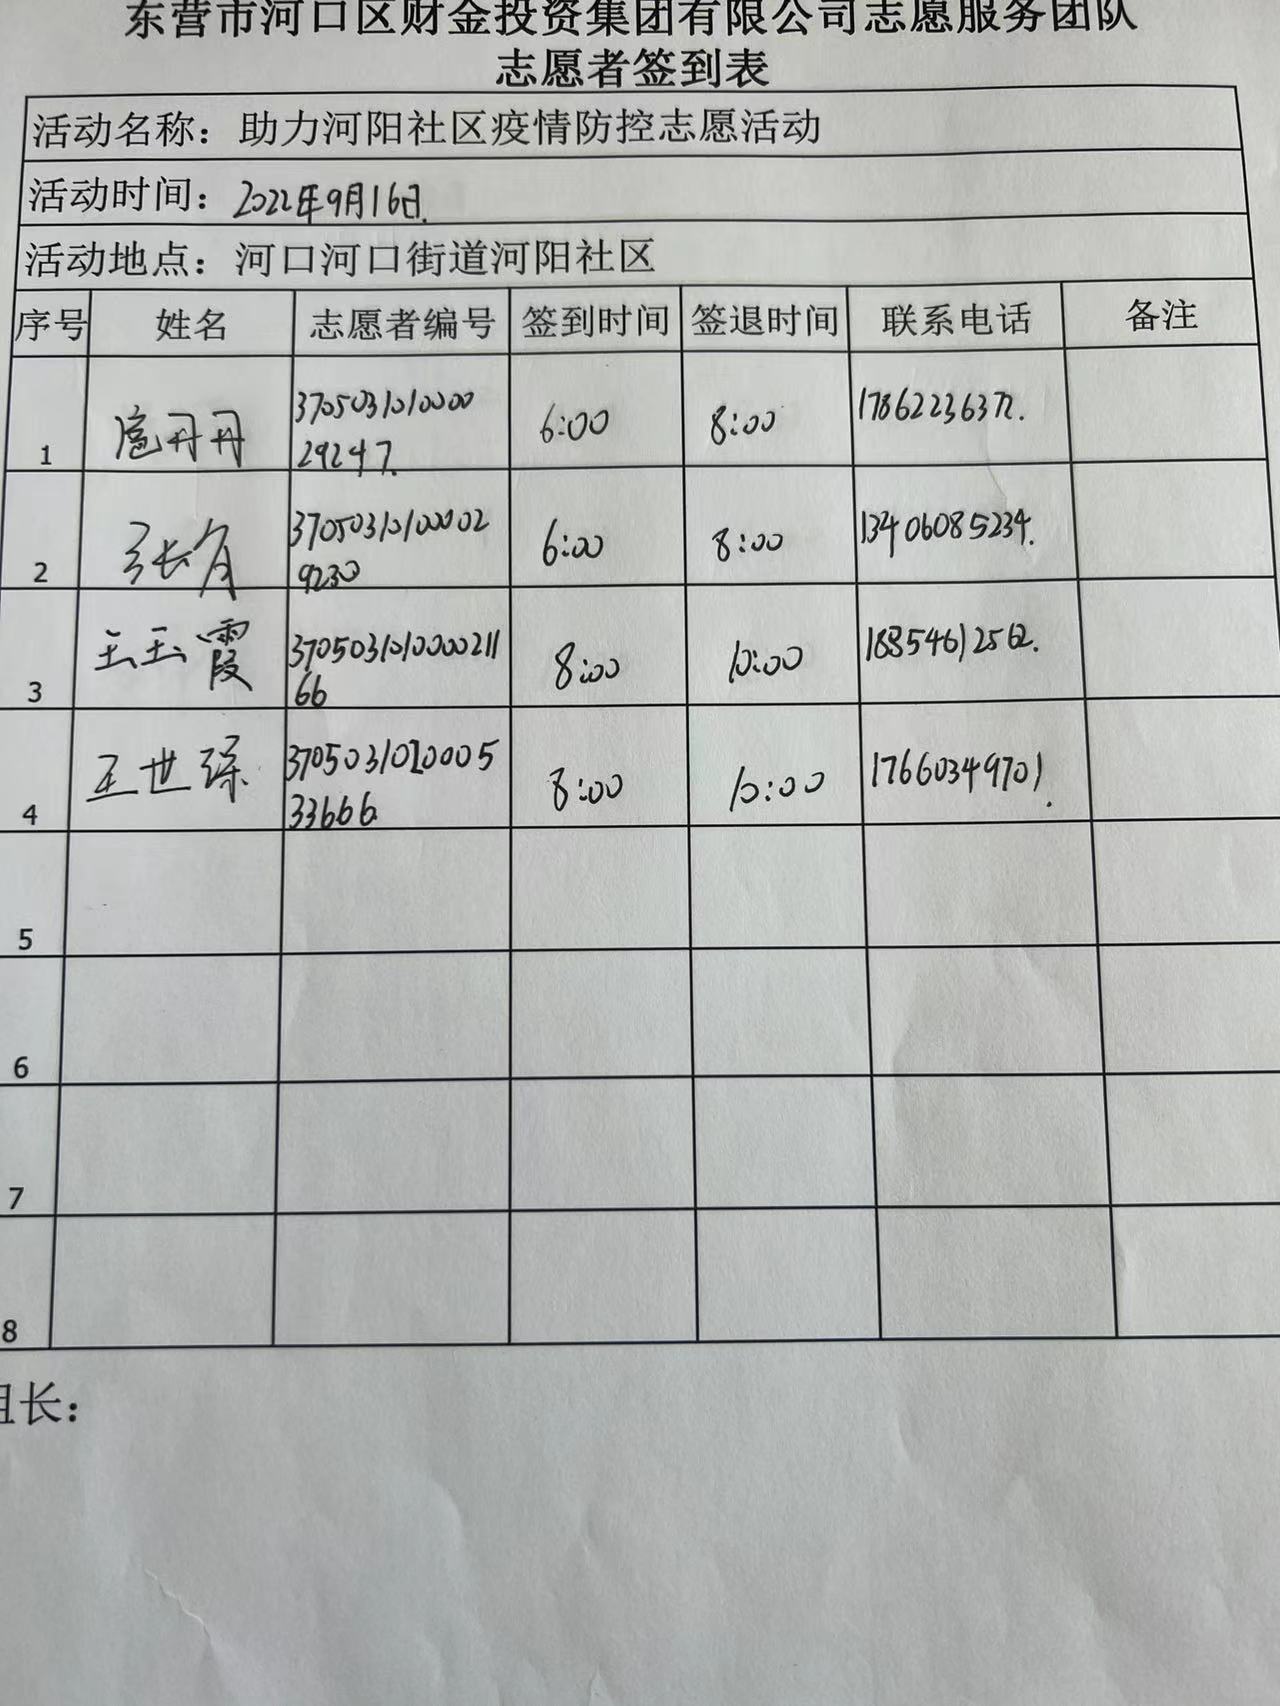 东营市河口区财金投资集团有限公司志愿服务团队
志愿者签到表
活动名称：助力河阳社区疫情防控志愿活动
活动时间：2022年9月16日.
活动地点：河口河口街道河阳社区
序号 姓名 志愿者编号 签到时间 签退时间 联系电话 备注
1 扈丹丹 3705031010000 6:00 8:00 17862236372.
29247.
2 张 37050310100002 6:00 8:00 13406085234.
9230
3 王玉霞 3705031010000211 8:00 10:00 18854612562.
66
4 王世 370503101020005 8:00 10:00 17660349701.
33666
5
6
7
8
组长：